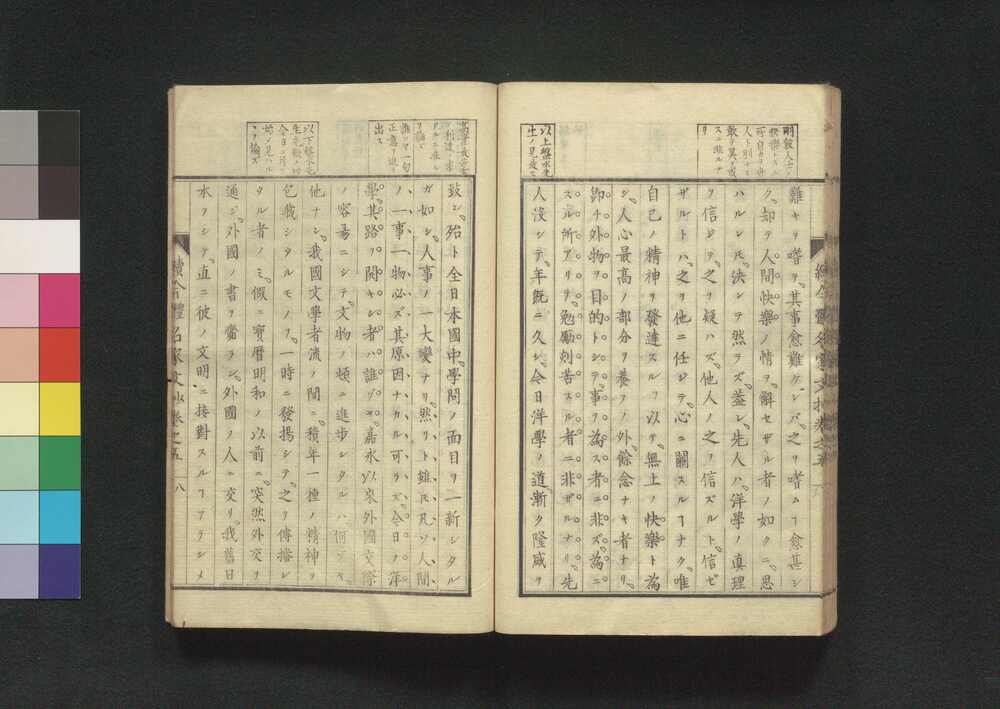 難キヲ嗜ヲ。其事愈難ケレバ。之ヲ嗜ムヿ愈甚シ
ク。却テ人間快樂ノ情ヲ。解セザル者ノ如クニ。思
ハルレ𪜈。決シテ然ラズ。蓋シ先人ハ。洋學ノ眞理
ヲ信ジテ。之ヲ疑ハズ。他人ノ之ヲ信ズルト。信ゼ
ザルトハ。之ヲ他ニ任ジテ。心ニ關スルヿナク。唯
自己ノ精神ヲ發達スルヿヲ以テ。無上ノ快樂ト爲
シ。人心最高ノ部分ヲ養フノ外。餘念ナキ者ナリ。
即チ外物ヲ目的トシテ。事ヲ爲ス者ニ非ズ。爲ニ
スル所アリテ。勉勵刻苦スル者ニ非ザルナリ。先
人沒シテ。年既ニ久シ。今日洋學ノ道。漸ク隆盛ヲ
以上盤水先
生ノ見

致シ。殆ト全日本國中。學問ノ面目ヲ一新シタル
ガ如シ。人事ノ一大變ナリ。然リト雖𪜈。凡ソ人間
ノ一事一物。必ズ其原因ナカル可ラズ。今日ノ洋
學。其路ヲ開キシ者ハ誰ゾ。嘉永以來外國交際
ノ容易ニシテ。文物ノ頓ニ進歩シタルハ何ゾヤ。
他ナシ。我國文學者流ノ間ニ。積年一種ノ精神ヲ
包藏シタルモノヲ。一時ニ發揚シテ。之ヲ傳播シ
タル者ノミ。假ニ寶暦明和ノ以前ニ。突然外交ヲ
通ジ。外國ノ書ヲ齎ラシ。外國ノ人ニ交リ。我舊日
本ヲシテ。直ニ彼ノ文明ニ接對スルヿアラシメ
續今體名家文抄卷之五 八